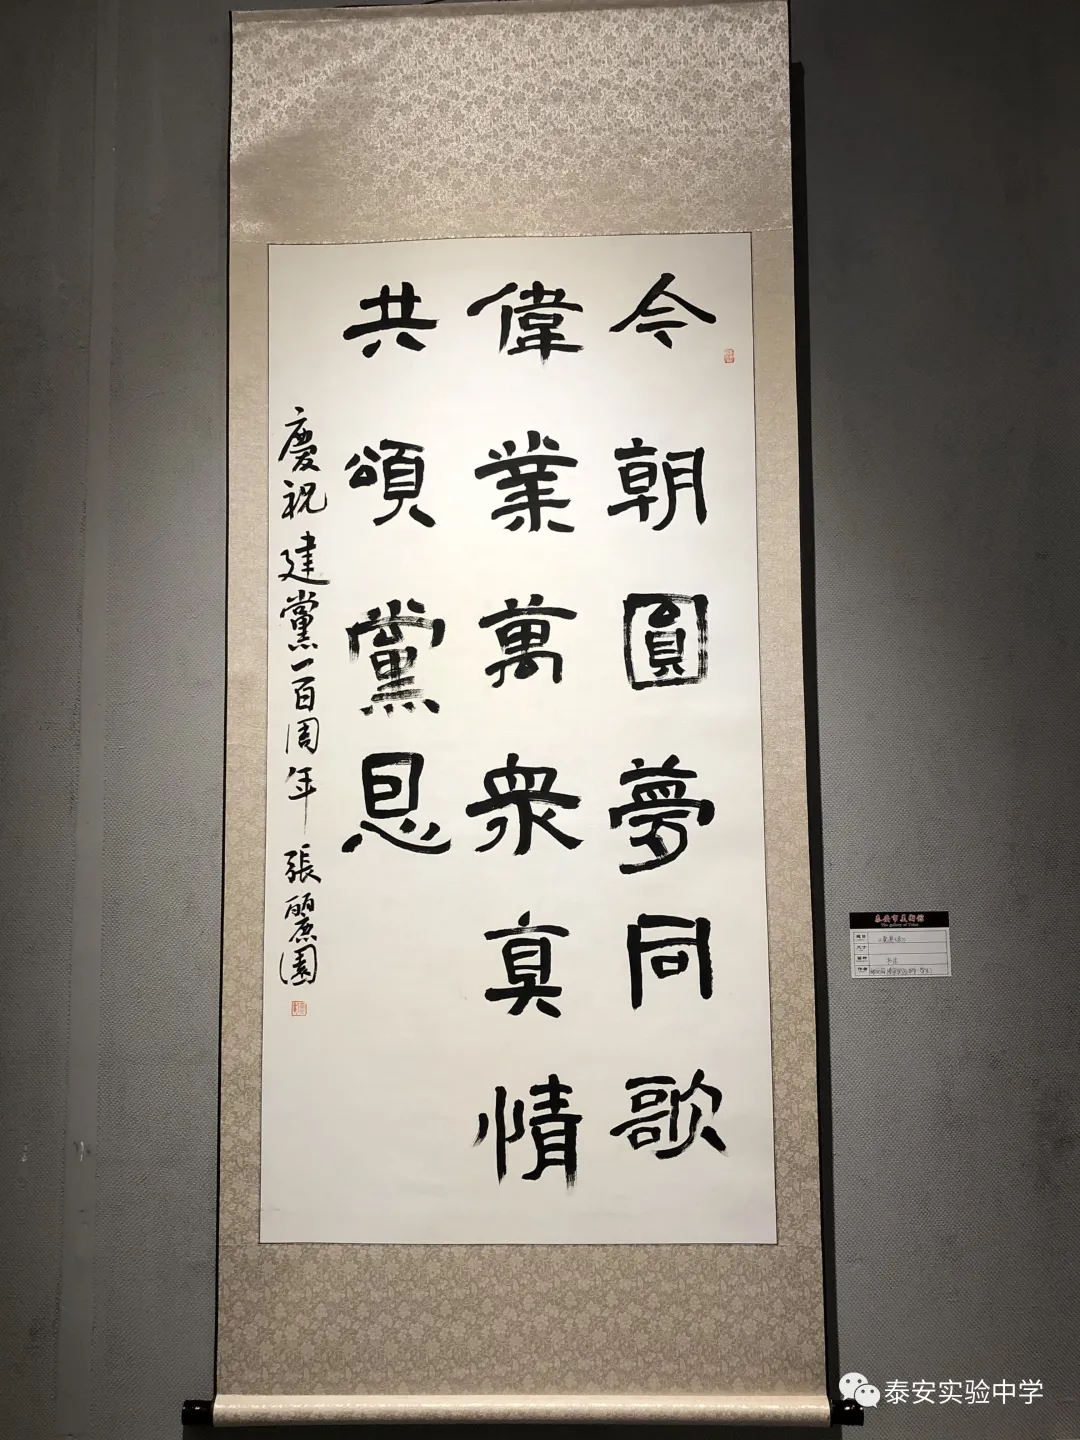 今朝圓夢同歌
偉業萬衆真情
共頌黨恩
慶祝建黨一百周年 張麗園
泰安市美術館
The gallery of Taian
泰安实验中学